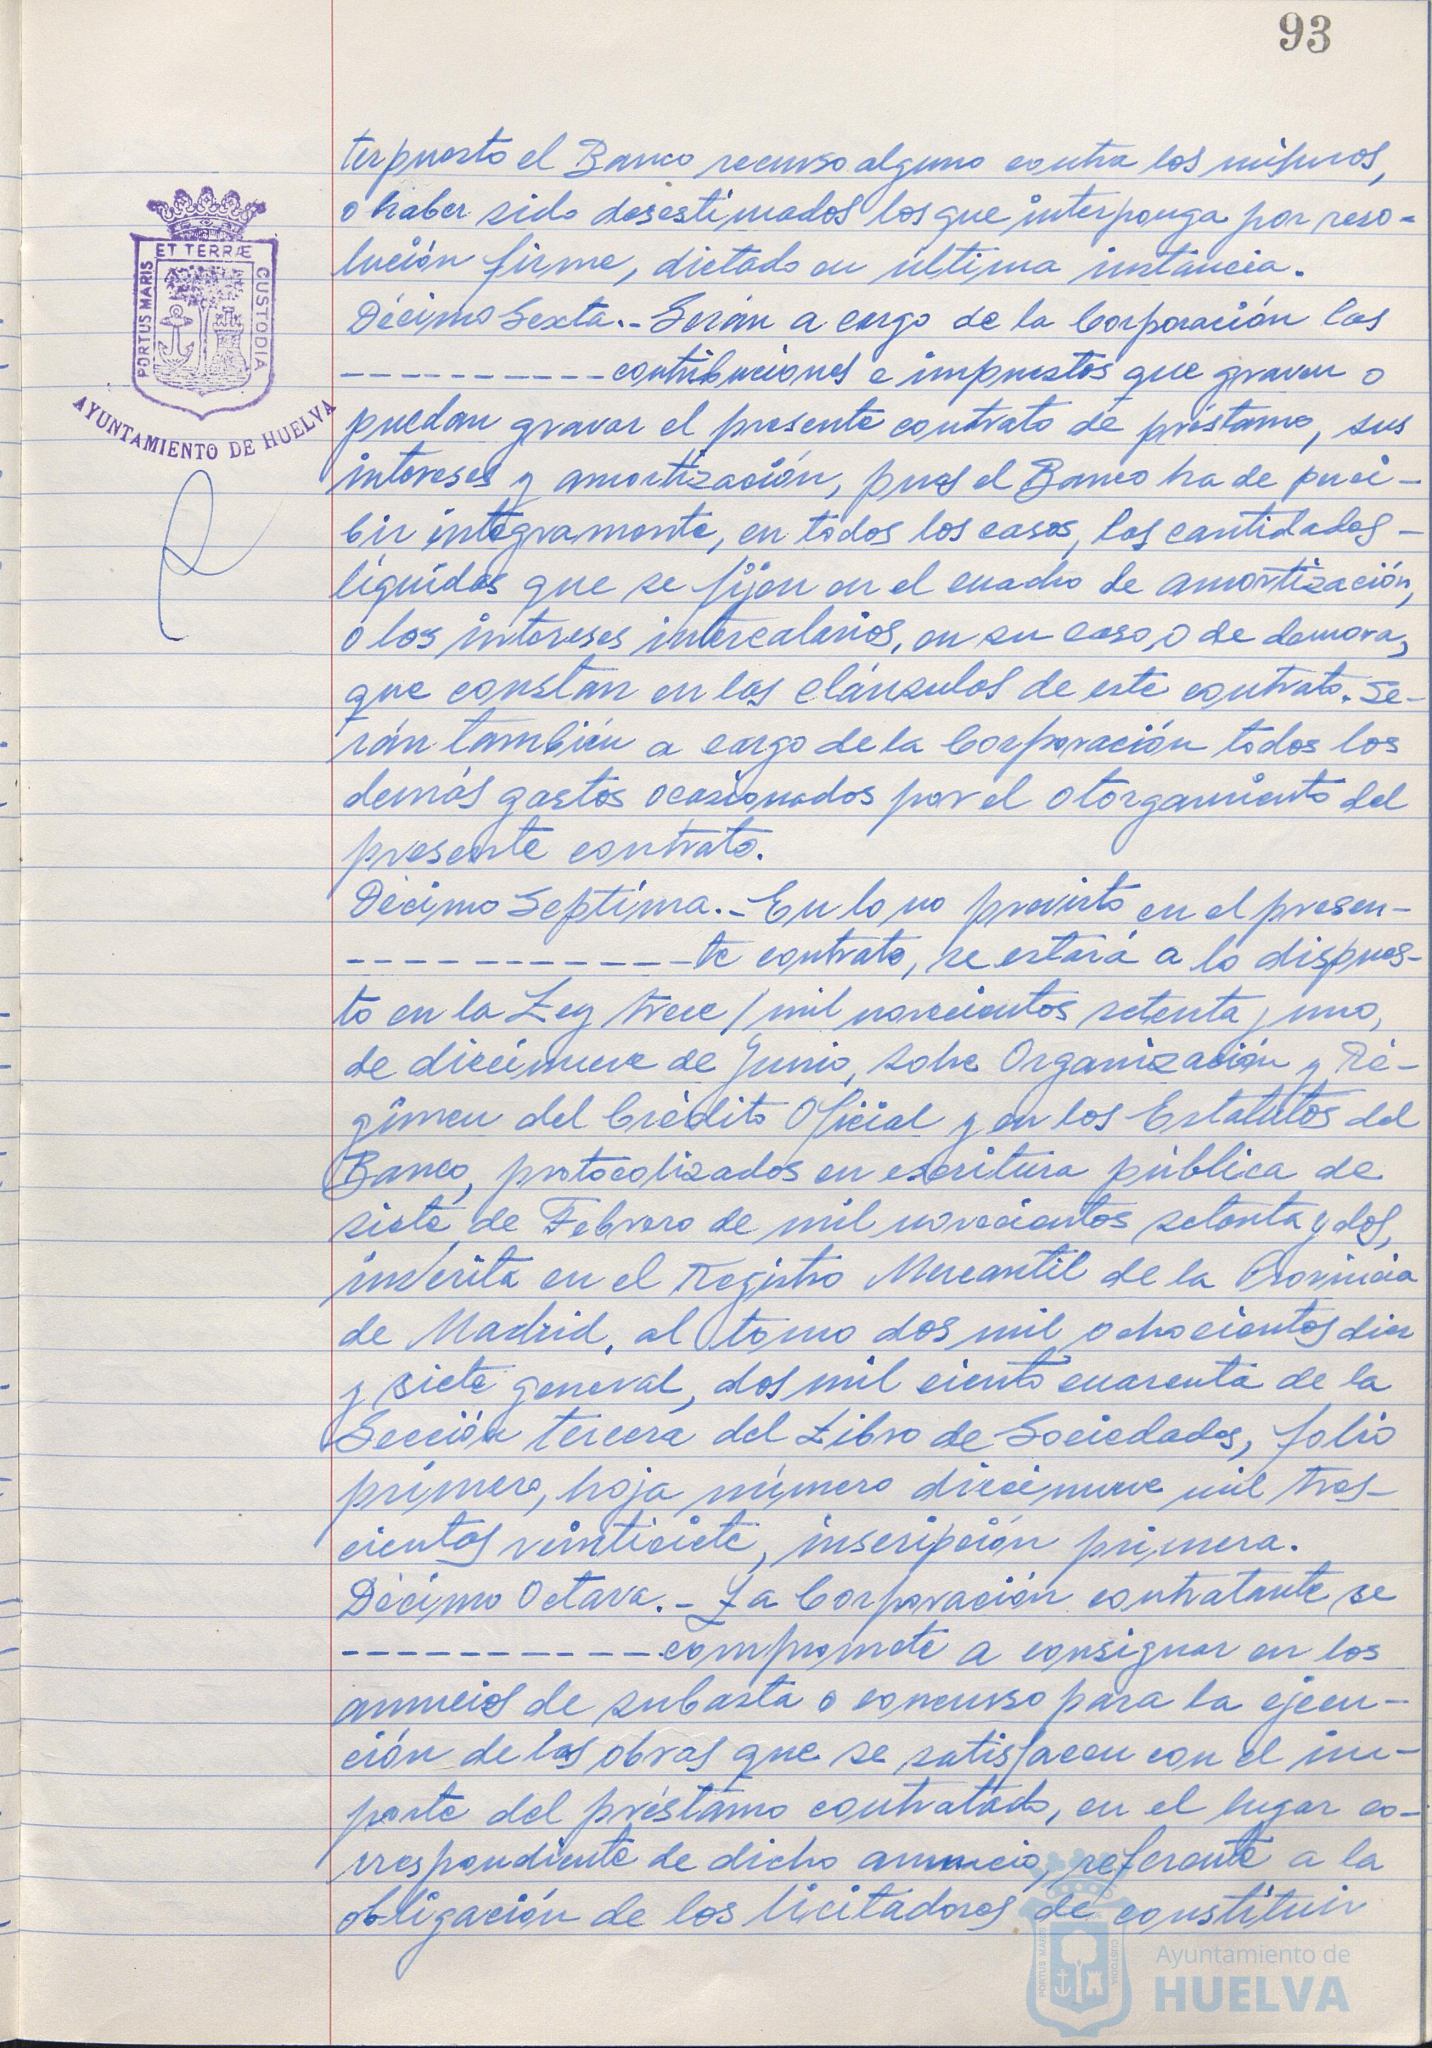 93
terpuesto el Banco recurso alguno contra los mismos,
o haber sido desestimados los que interponga por reso-
lución firme, dictado en última instancia.
Décimo Sexta.- Serán a cargo de la Corporación las
---------- contribuciones e impuestos que graven o
puedan gravar el presente contrato de préstamo, sus
intereses y amortización, pues el Banco ha de perci-
bir íntegramente, en todos los casos, las cantidades-
líquidas que se fijen en el cuadro de amortización,
o los intereses intercalarios, en su caso, o de demora,
que constan en las cláusulas de este contrato. Se-
rán también a cargo de la Corporación todos los
demás gastos ocasionados por el otorgamiento del
presente contrato.
Décimo Septima.- En lo no previsto en el presen-
------------ te contrato, se estará a lo dispues-
to en la Ley trece/mil novecientos setenta y uno,
de diecinueve de Junio, sobre Organización y Ré-
gimen del Crédito Oficial y en los Estatutos del
Banco, protocolizados en escritura pública de
siete de Febrero de mil novecientos setenta y dos,
inscrita en el Registro Mercantil de la Provincia
de Madrid, al tomo dos mil ochocientos diez
y siete general, dos mil ciento cuarenta de la
Sección tercera del Libro de Sociedades, folio
primero, hoja número diecinueve mil tres-
cientos veintisiete, inscripción primera.
Décimo Octava.- La Corporación contratante se
----------- compromete a consignar en los
anuncios de subasta o concurso para la ejecu-
ción de las obras que se satisfacen con el im-
porte del préstamo contratado, en el lugar co-
rrespondiente de dicho anuncio, referente a la
obligación de los licitadores de constituir
PORTUS MARIS ET TERRÆ CUSTODIA
AYUNTAMIENTO DE HUELVA
PORTUS MARIS CUSTODIA
Ayuntamiento de
HUELVA